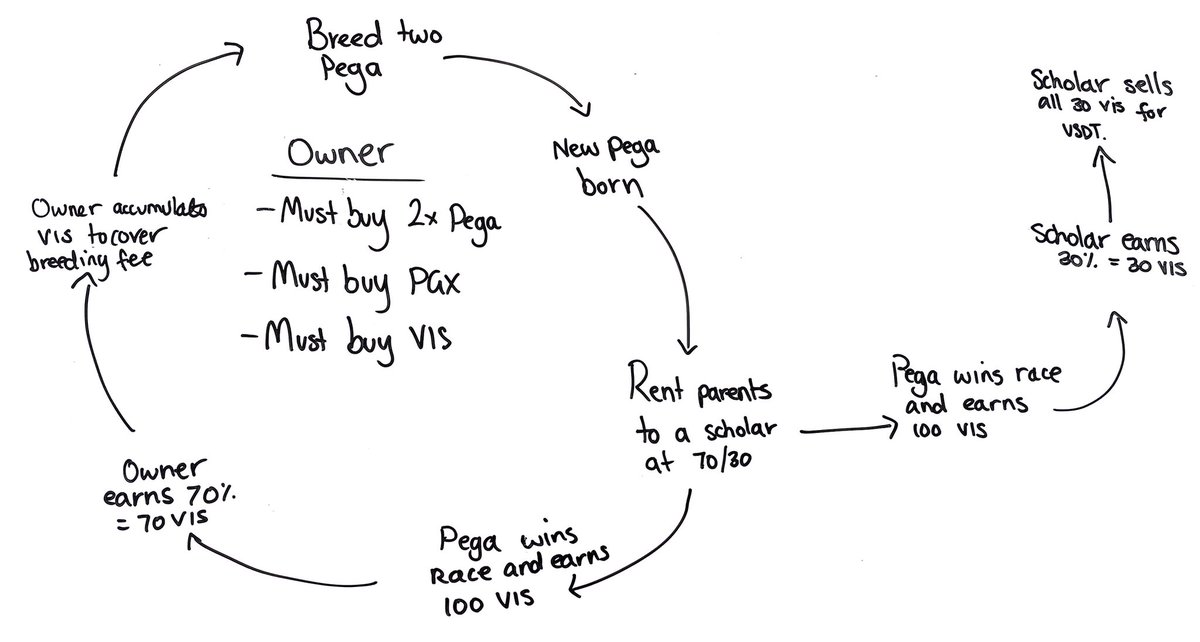 Breed two
Pega
New Pega
born
Rent parents
to a scholar
at 70/30
Pega wins race
and earns
100 VIS
Scholar earns
30% = 30 VIS
Scholar sells
all 30 vis for
USDT.
Pega wins
Race and earns
100 VIS
Owner
earns 70%
= 70 VIS
Owner accumulates
VIS to cover
breeding fee
Owner
- Must buy 2x Pega
- Must buy PGX
- Must buy VIS